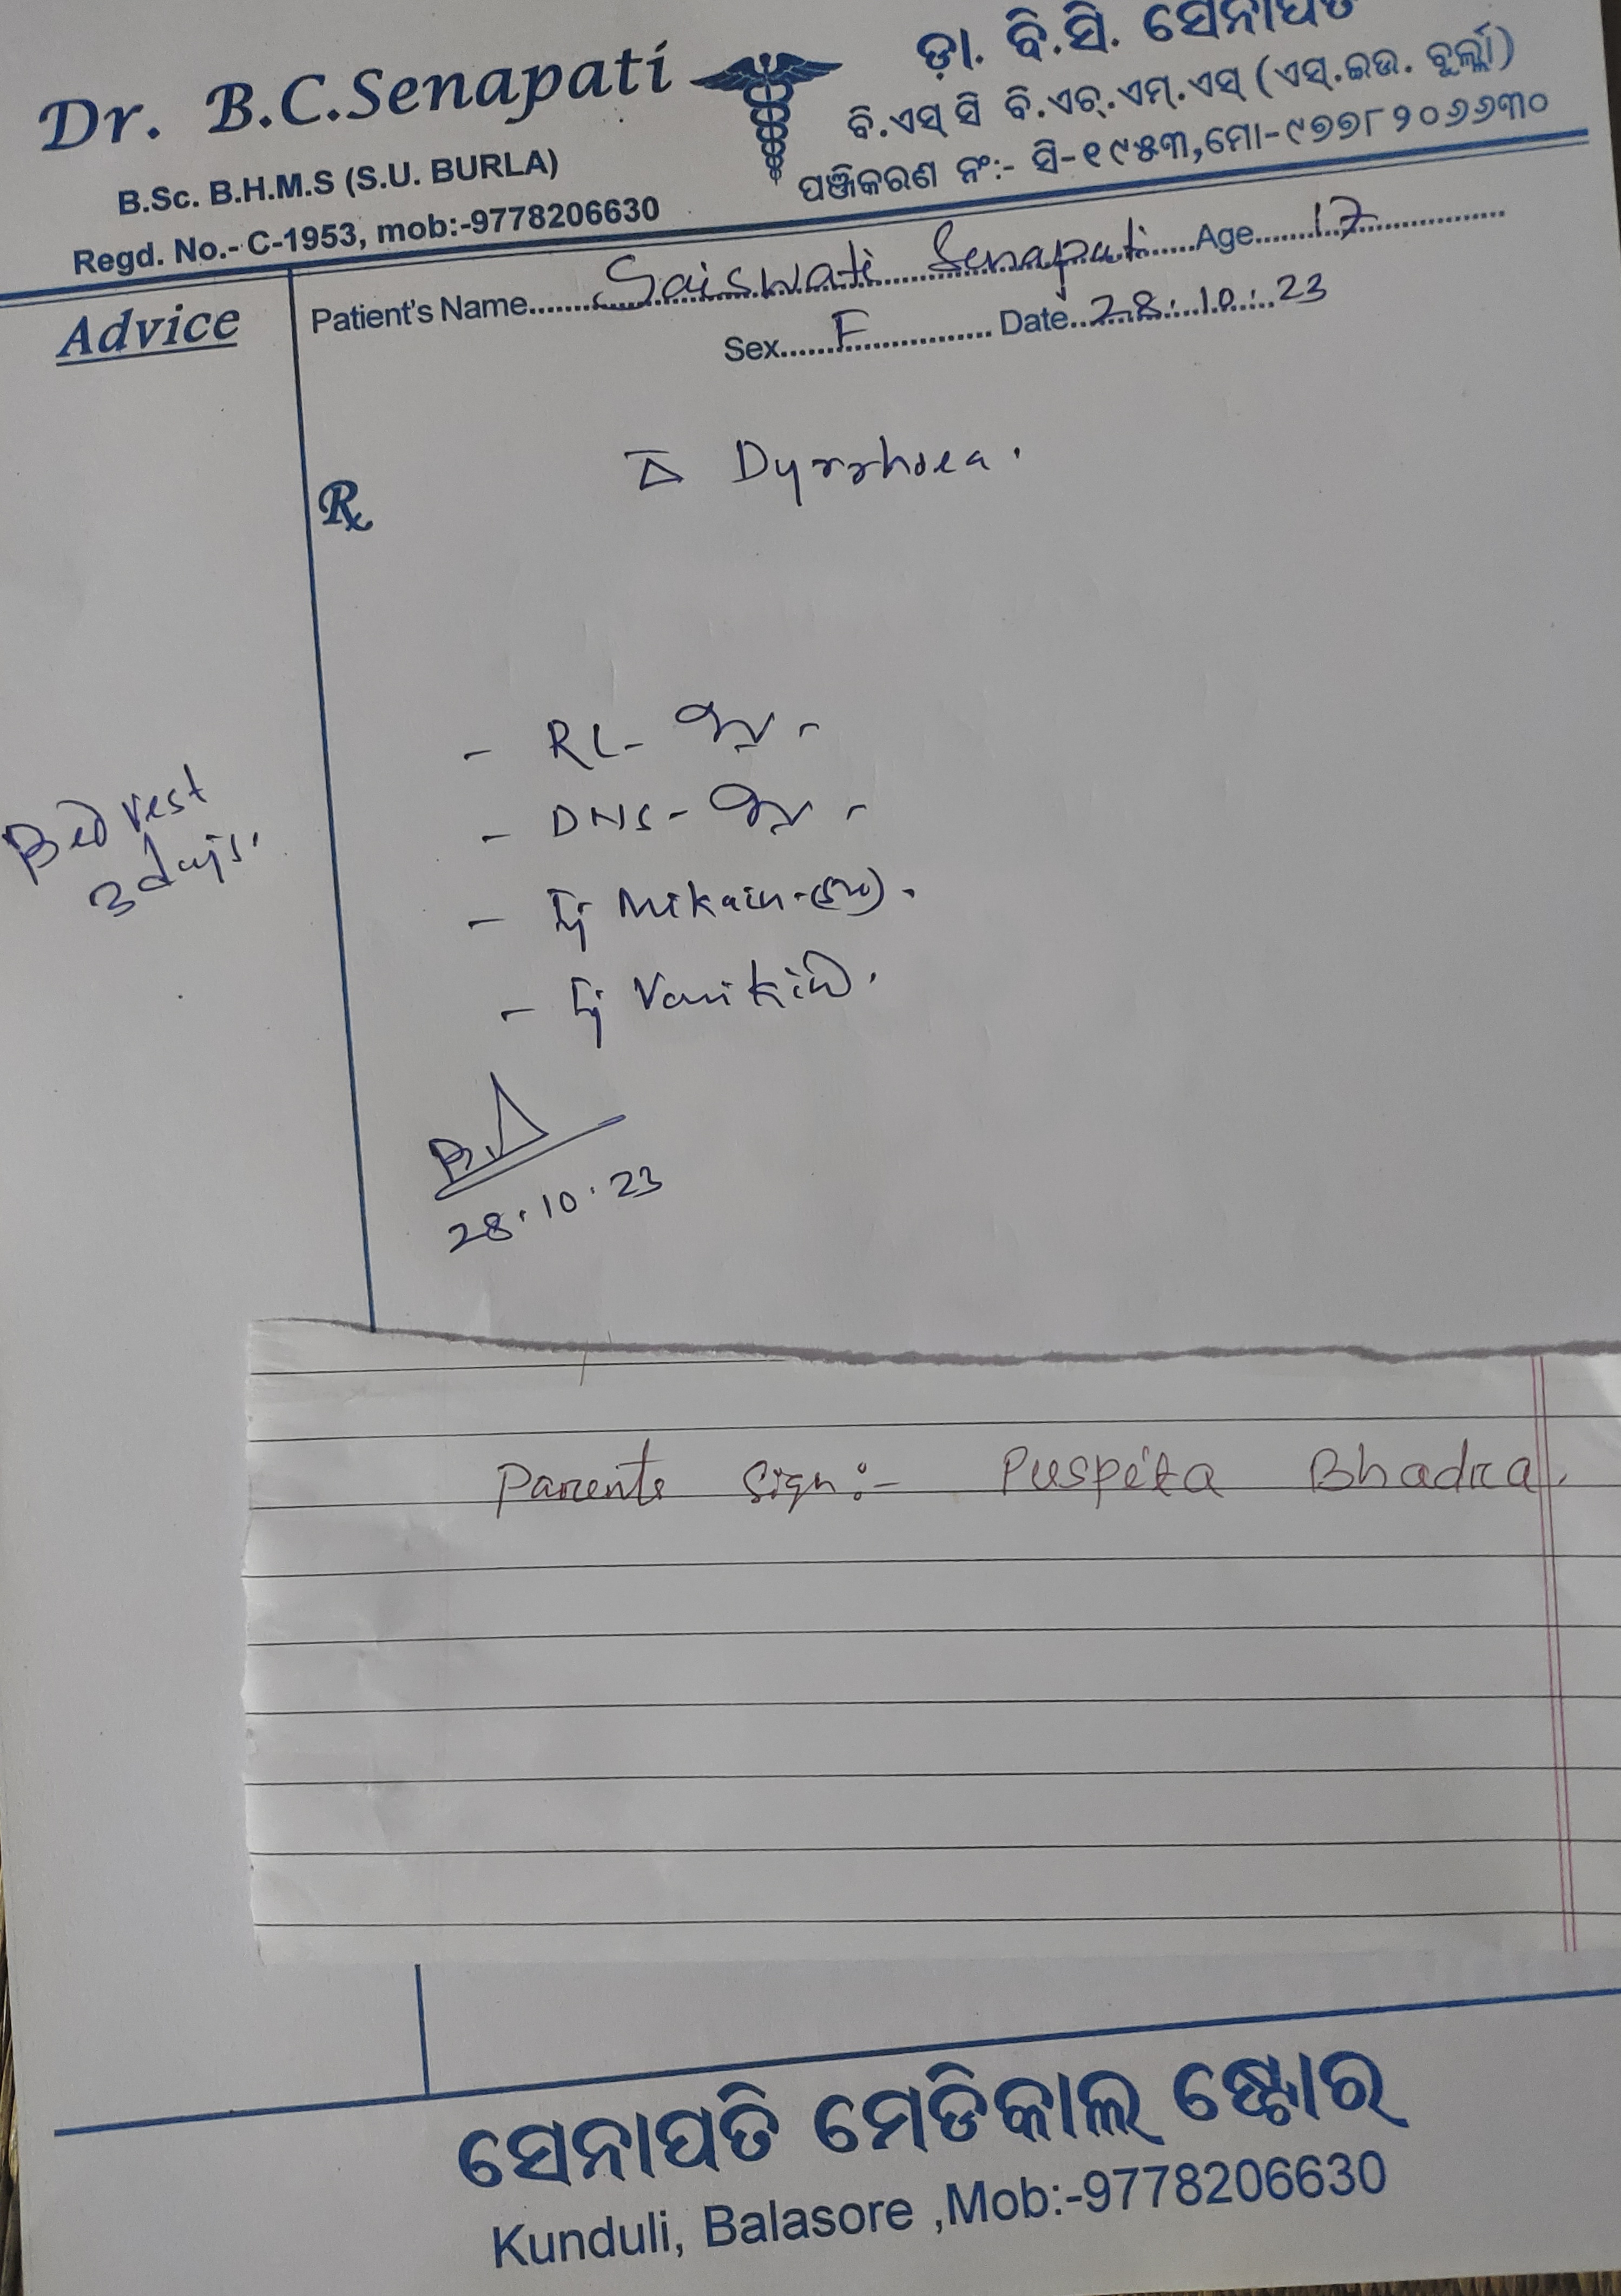 Dr. B.C.Senapati
B.Sc. B.H.M.S (S.U. BURLA)
Regd. No.- C-1953, mob:-9778206630
ଡ଼ା. ବି.ସି. ସେନାପତି
ବି.ଏସ୍ ସି ବି.ଏଚ୍.ଏମ୍.ଏସ୍ (ଏସ୍.ଇଉ. ବୁର୍ଲା)
ପଞ୍ଜିକରଣ ନଂ:- ସି-୧୯୫୩,ମୋ-୯୭୭୮୨୦୬୬୩୦
Patient's Name Saiswati Senapati Age 17
Sex F Date 28.10.23
Advice
Δ Dyrrhoea.
Rx
- RL-
- DNS-
- Inj Mikacin-(500).
- Inj
Bed rest
3 days.
28.10.23
Parents Sign:- Puspita Bhadra.
ସେନାପତି ମେଡିକାଲ ଷ୍ଟୋର
Kunduli, Balasore ,Mob:-9778206630